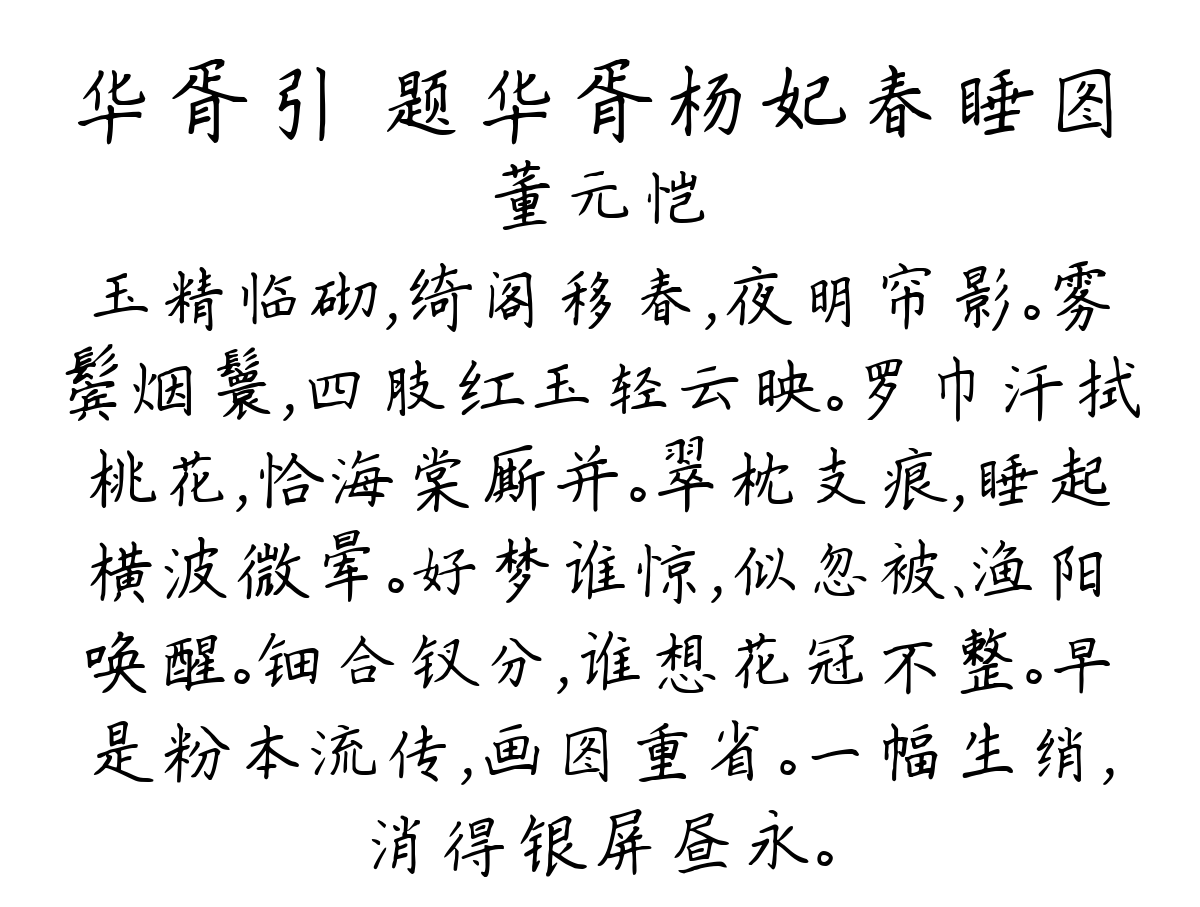 华胥引 题华胥杨妃春睡图
董元恺
玉精临砌,绮阁移春,夜明帘影。雾
鬓烟鬟,四肢红玉轻云映。罗巾汗拭
桃花,恰海棠厮并。翠枕支痕,睡起
横波微晕。好梦谁惊,似忽被、渔阳
唤醒。钿合钗分,谁想花冠不整。早
是粉本流传,画图重省。一幅生绡,
消得银屏昼永。